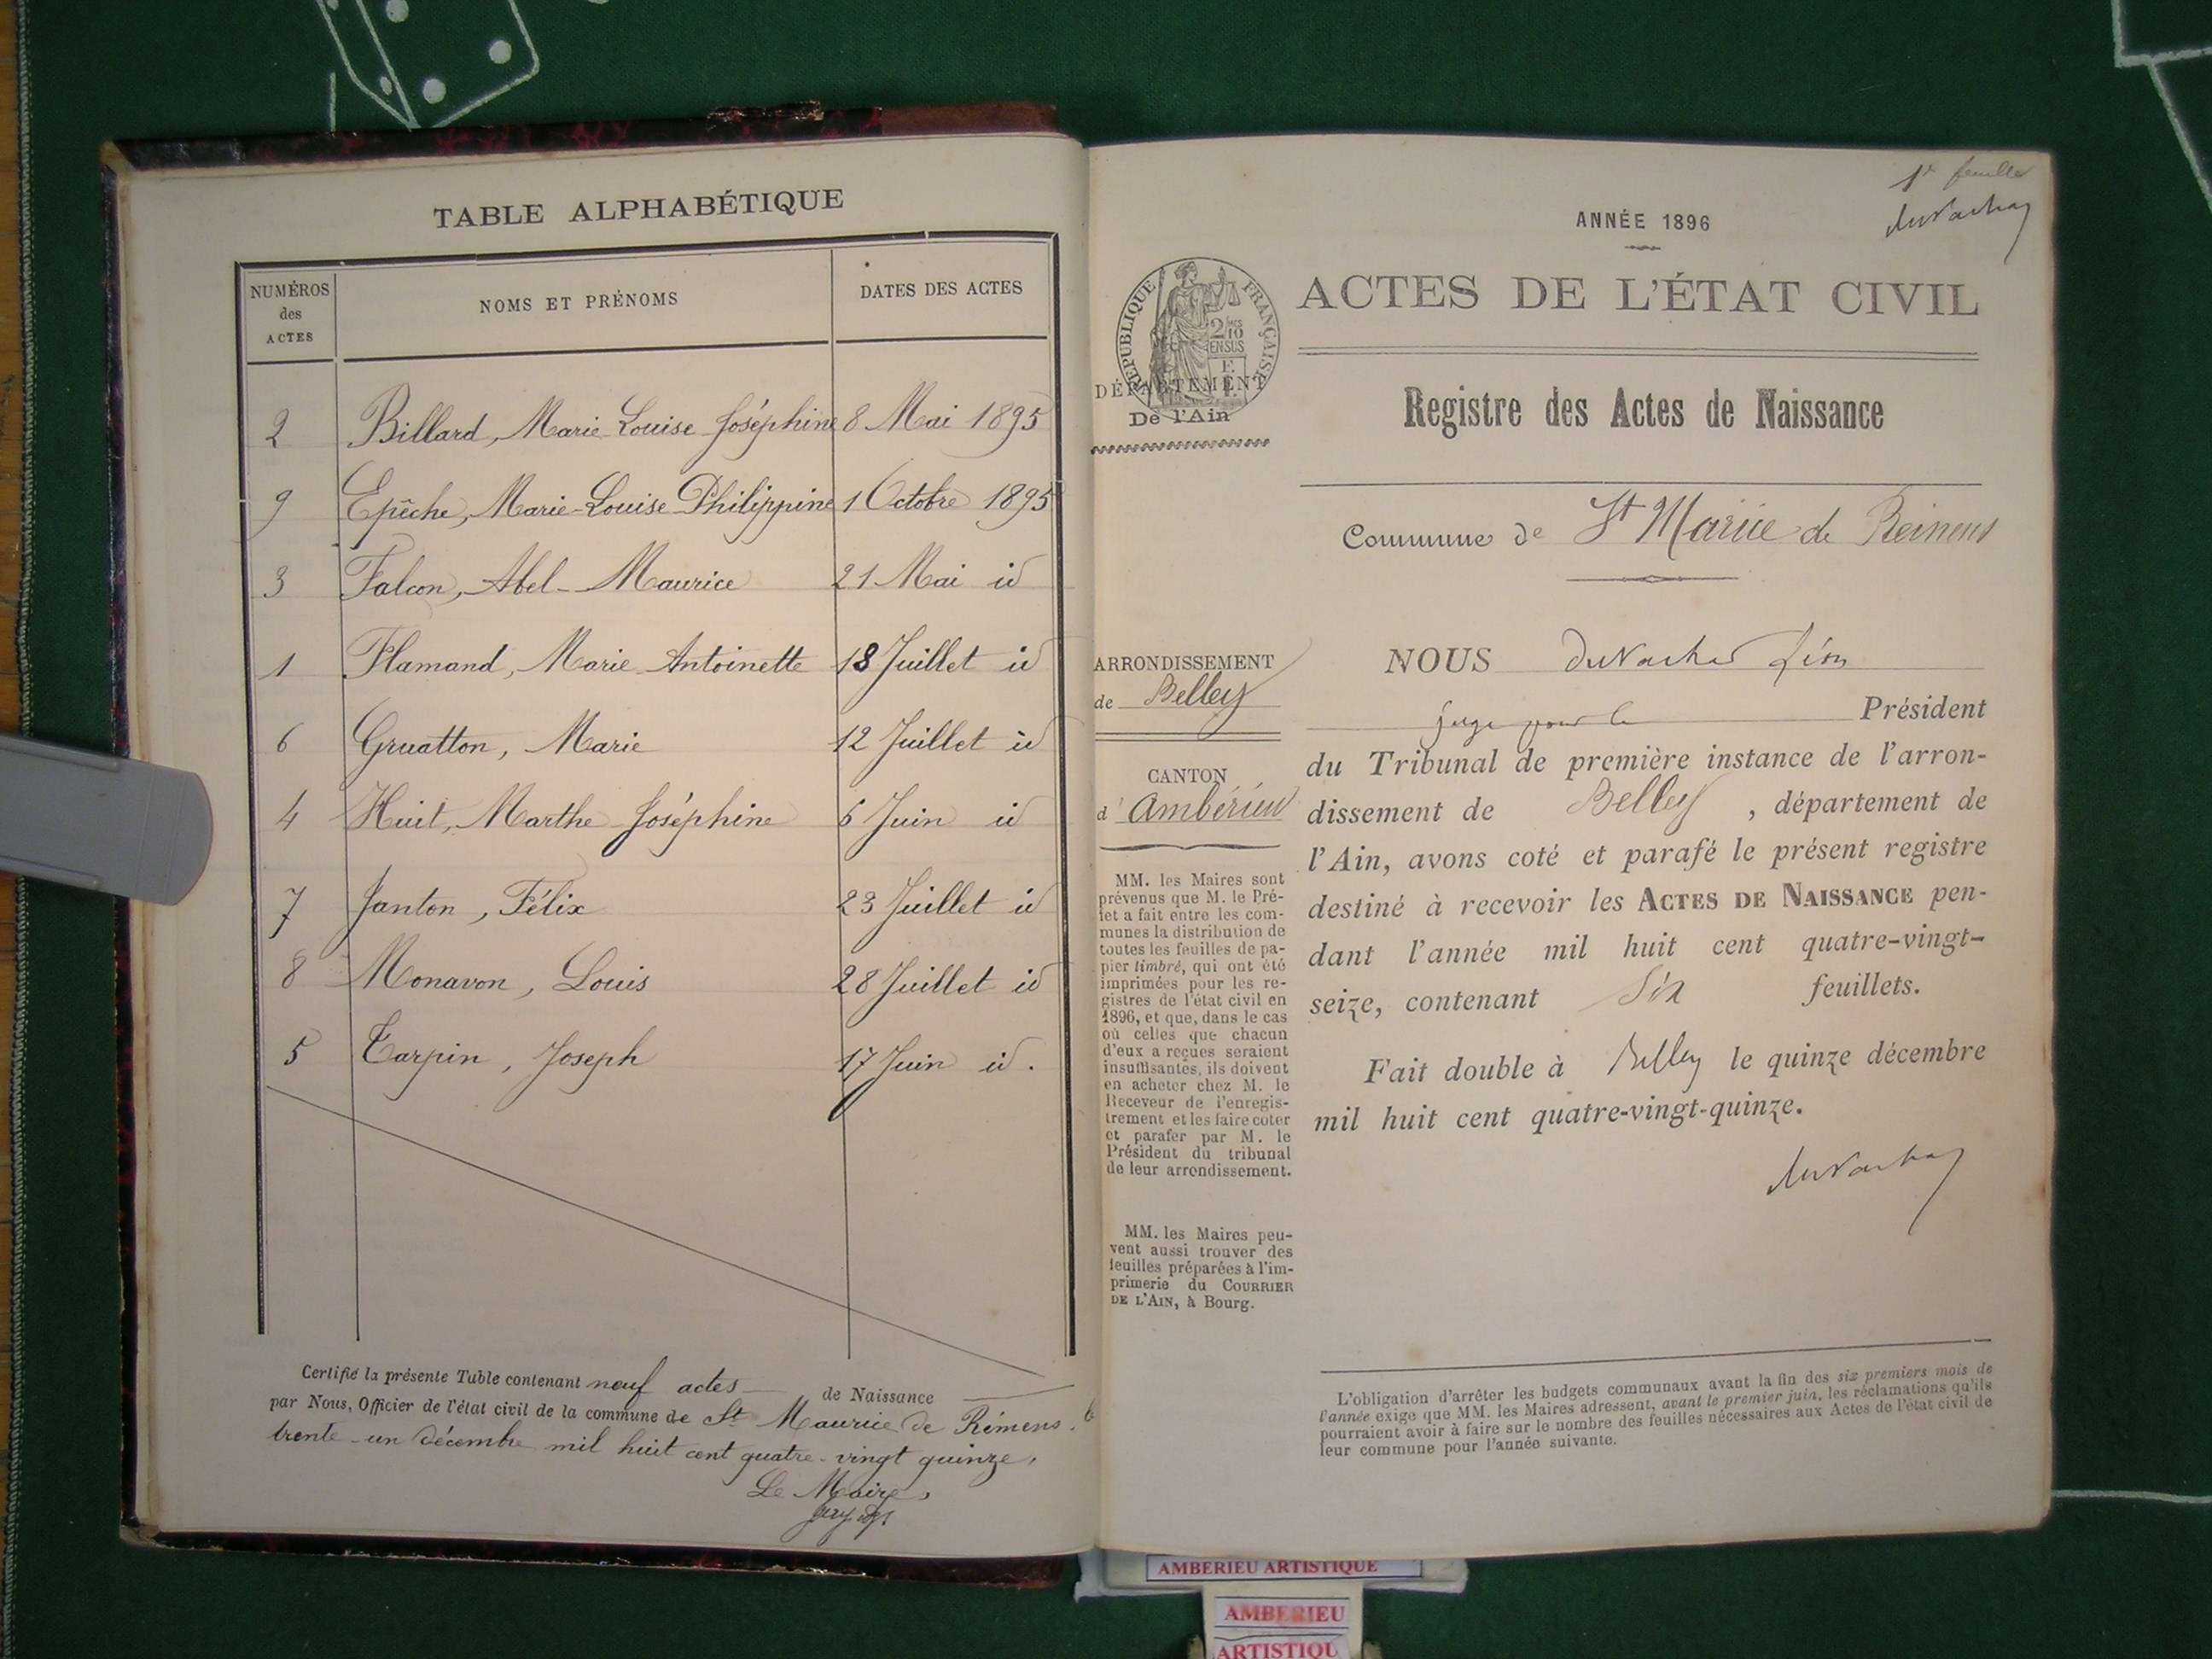 TABLE ALPHABÉTIQUE
NUMÉROS des ACTES NOMS ET PRÉNOMS DATES DES ACTES
2 Billard, Marie Louise Joséphine 8 Mai 1895
9 Epêche, Marie-Louise Philippine 1 Octobre 1895
3 Falcon, Abel-Maurice 21 Mai id
1 Flamand, Marie Antoinette 18 Juillet id
6 Gruatton, Marie 12 Juillet id
4 Huit, Marthe Joséphine 6 Juin id
7 Janton, Félix 23 Juillet id
8 Monavon, Louis 28 Juillet id
5 Tarpin, Joseph 17 Juin id.
Certifié la présente Table contenant neuf actes de Naissance
par Nous, Officier de l'état civil de la commune de St Maurice de Rémens.
trente-un décembre mil huit cent quatre-vingt quinze,
Le Maire,
1r feuillet
ANNÉE 1896
RÉPUBLIQUE FRANÇAISE
2/10 EN SUS
DÉPARTEMENT
De l'Ain
ACTES DE L'ÉTAT CIVIL
Registre des Actes de Naissance
Commune de St Maurice de
ARRONDISSEMENT
de Belley
CANTON
d'Ambérieu
MM. les Maires sont
prévenus que M. le Pré-
fet a fait entre les com-
munes la distribution de
toutes les feuilles de pa-
pier timbré, qui ont été
imprimées pour les re-
gistres de l'état civil en
1896, et que, dans le cas
où celles que chacun
d'eux a reçues seraient
insuffisantes, ils doivent
en acheter chez M. le
Receveur de l'enregis-
trement et les faire coter
et parafer par M. le
Président du tribunal
de leur arrondissement.
MM. les Maires peu-
vent aussi trouver des
feuilles préparées à l'im-
primerie du COURRIER
DE L'AIN, à Bourg.
NOUS
juge pour le Président
du Tribunal de première instance de l'arron-
dissement de Belley, département de
l'Ain, avons coté et parafé le présent registre
destiné à recevoir les ACTES DE NAISSANCE pen-
dant l'année mil huit cent quatre-vingt-
seize, contenant six feuillets.
Fait double à Belley le quinze décembre
mil huit cent quatre-vingt-quinze.
L'obligation d'arrêter les budgets communaux avant la fin des six premiers mois de
l'année exige que MM. les Maires adressent, avant le premier juin, les réclamations qu'ils
pourraient avoir à faire sur le nombre des feuilles nécessaires aux Actes de l'état civil de
leur commune pour l'année suivante.
AMBERIEU ARTISTIQUE
AMBERIEU
ARTISTIQU